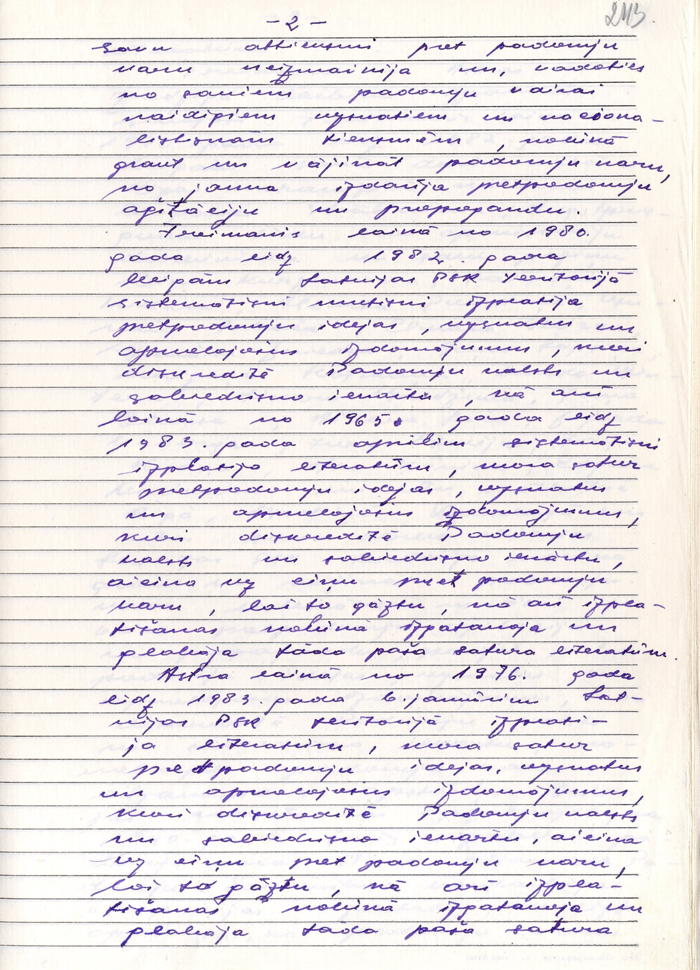 - 2 -
2113.
savu attieksmi pret padomju
varu neizmainīja un, vadoties
no saviem padomju varai
naidīgiem uzskatiem un naciona-
listiskām tieksmēm, nolūkā
graut un vājināt padomju varu,
no jauna izdarīja pretpadomju
aģitāciju un propagandu.
Freimanis laikā no 1980.
gada līdz 1982. gada
beigām Latvijas PSR teritorijā
sistemātiski mutiski izplatīja
pretpadomju idejas, uzskatus un
apmelojošus izdomājumus, kuri
diskreditē Padomju valsti un
sabiedrisko iekārtu, kā arī
laikā no 1965. gada līdz
1983. gada aprīlim sistemātiski
izplatīja literatūru, kura satur
pretpadomju idejas, uzskatus
un apmelojošus izdomājumus,
kuri diskreditē Padomju
valsti un sabiedrisko iekārtu,
aicina uz cīņu pret padomju
varu, lai to gāztu, kā arī izpla-
tīšanas nolūkā izgatavoja un
glabāja tāda paša satura literatūru.
Astra laikā no 1976. gada
līdz 1983. gada 6. janvārim, Lat-
vijas PSR teritorijā izplatī-
ja literatūru, kura satur
pretpadomju idejas, uzskatus
un apmelojošus izdomājumus,
kuri diskreditē Padomju valsti
un sabiedrisko iekārtu, aicina
uz cīņu pret padomju varu,
lai to gāztu, kā arī izpla-
tīšanas nolūkā izgatavoja un
glabāja tāda paša satura